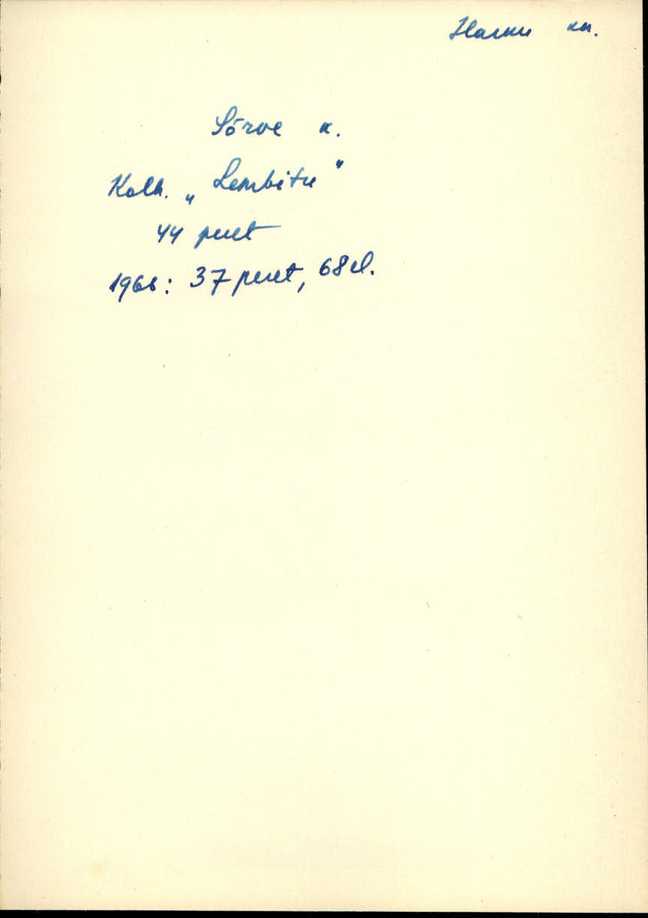 Harku kn.
Sõrve k.
Kolh. „Lembitu"
44 peret
1968: 37 peret, 68 el.